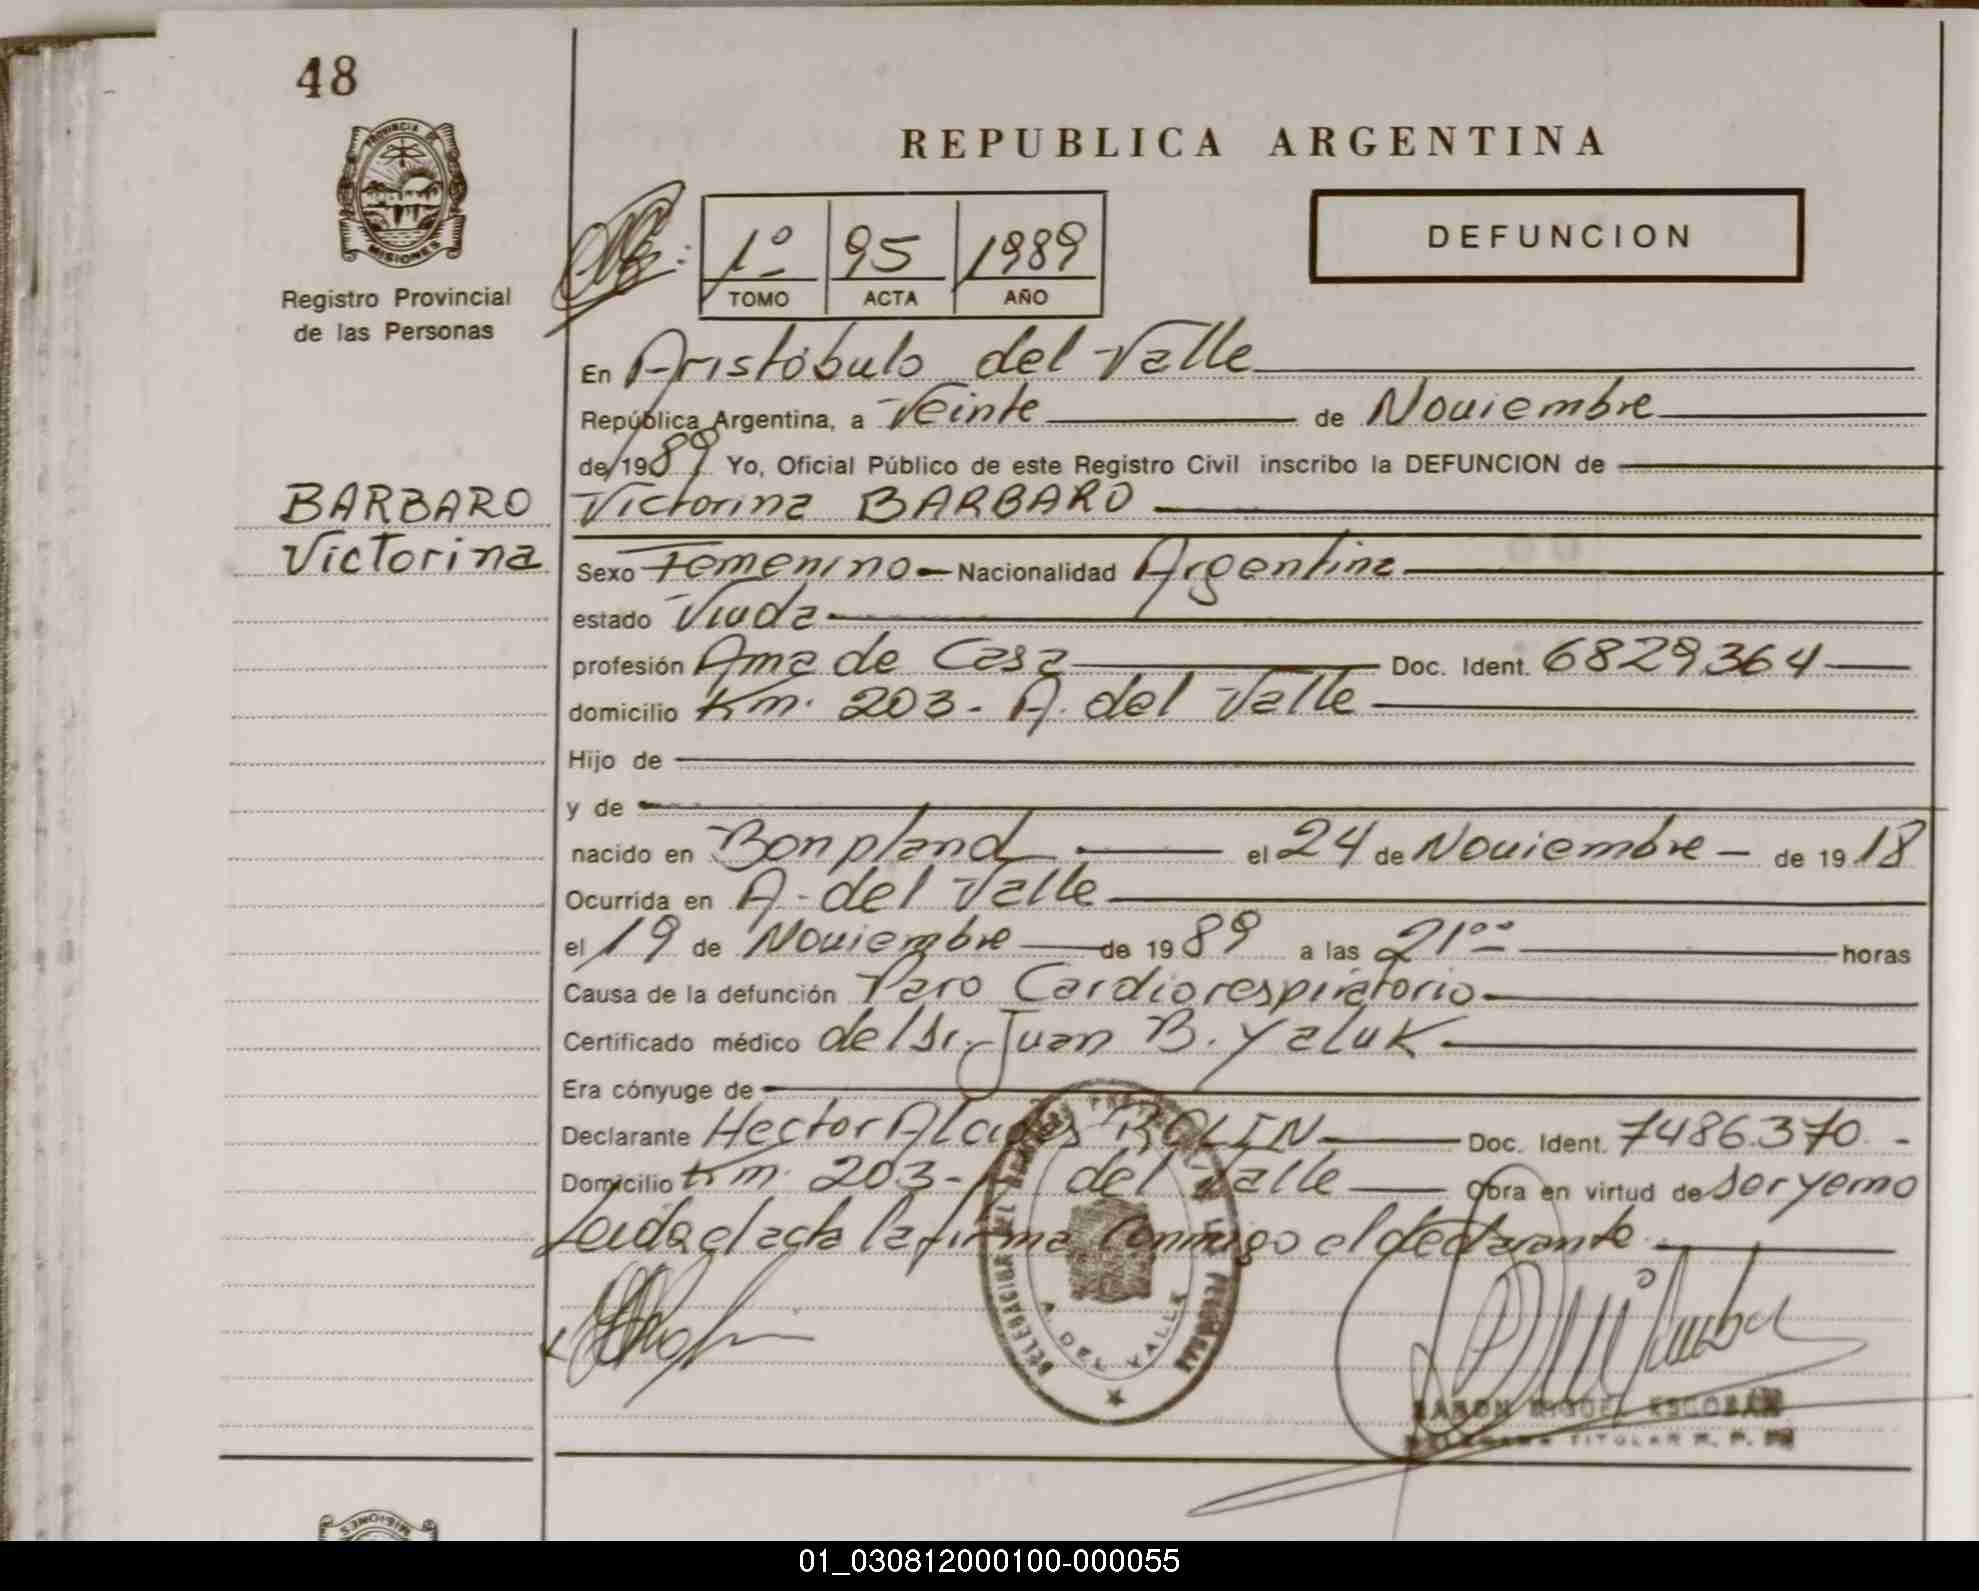 48
PROVINCIA DE
MISIONES
Registro Provincial
de las Personas
REPUBLICA ARGENTINA
DEFUNCION
1º 95 1989
TOMO ACTA AÑO
En Aristóbulo del Valle
República Argentina, a Veinte de Noviembre
de 1989 Yo, Oficial Público de este Registro Civil inscribo la DEFUNCION de
BARBARO
Victorina
Victorina BARBARO
Sexo Femenino Nacionalidad Argentina
estado Viuda
profesión Ama de Casa Doc. Ident. 6829364
domicilio Km. 203 - A. del Valle
Hijo de
y de
nacido en Bonpland el 24 de Noviembre - de 1918
Ocurrida en A. del Valle
el 19 de Noviembre de 1989 a las 21⁰⁰ horas
Causa de la defunción Paro Cardiorespiratorio
Certificado médico del Dr. Juan B. Yaluk
Era cónyuge de
Declarante Hector Alcides ROLIN Doc. Ident. 7486.370 -
Domicilio Km. 203 - A. del Valle Obra en virtud de ser yerno
Leida el acta la firma conmigo el declarante
DELEGACION DEL REGISTRO PROVINCIAL DE LAS PERSONAS
A. DEL VALLE
RAMON MIGUEL ESCOBAR
TITULAR R. P.
MISIONES
01_030812000100-000055